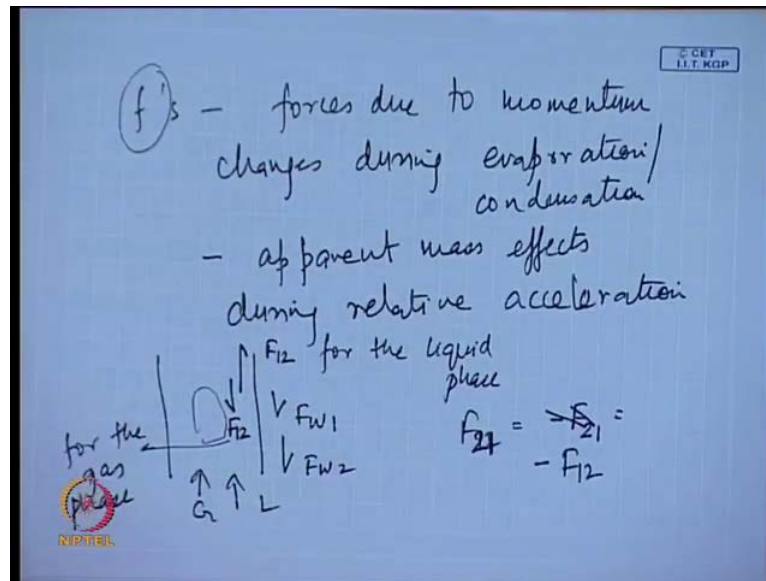 © CET
I.I.T. KGP
f's - forces due to momentum
changes during evaporation/
condensation
- apparent mass effects
during relative acceleration
F12 for the liquid
phase
for the
gas
phase
F12
FW1
FW2
G L
F21 = -F21 =
- F12
NPTEL